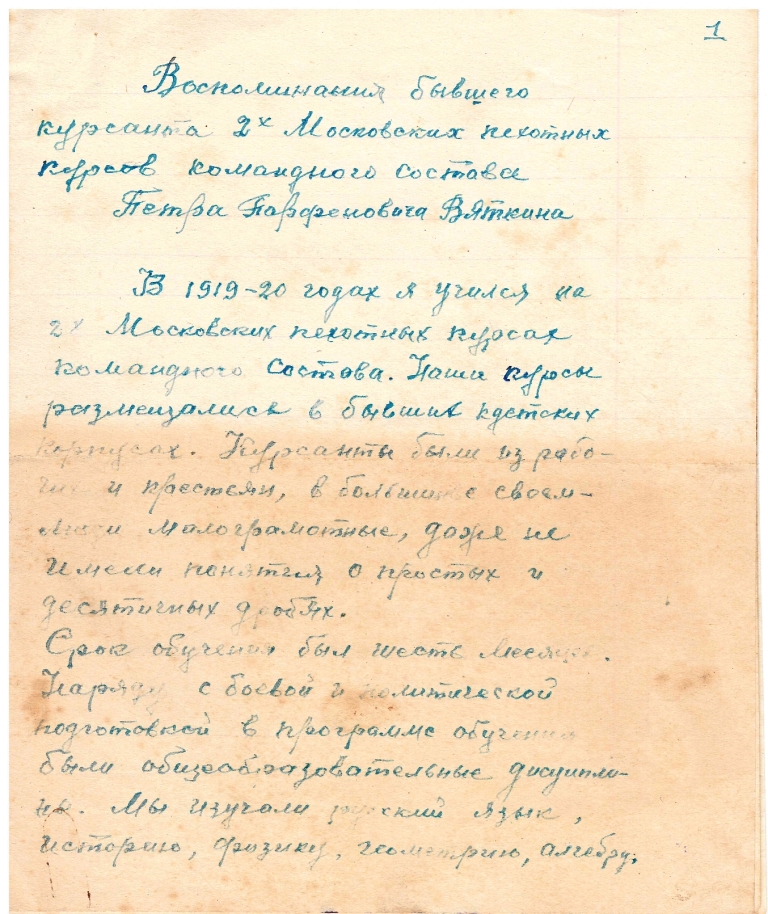 1
Воспоминания бывшего
курсанта 2х Московских пехотных
курсов командного состава
Петра Парфеновича Вяткина
В 1919-20 годах я учился на
2х Московских пехотных курсах
командного состава. Наши курсы
размещались в бывших кдетских
корпусах. Курсанты были из рабо-
чих и крестьян, в большинс своем-
люди малограмотные, даже не
имели понятия о простых и
десятичных дробях.
Срок обучения был шесть месяцев.
Наряду с боевой и политической
подготовкой в программе обучения
были общеобразовательные дисципли-
ны. Мы изучали русский язык,
историю, физику, геометрию, алгебру,